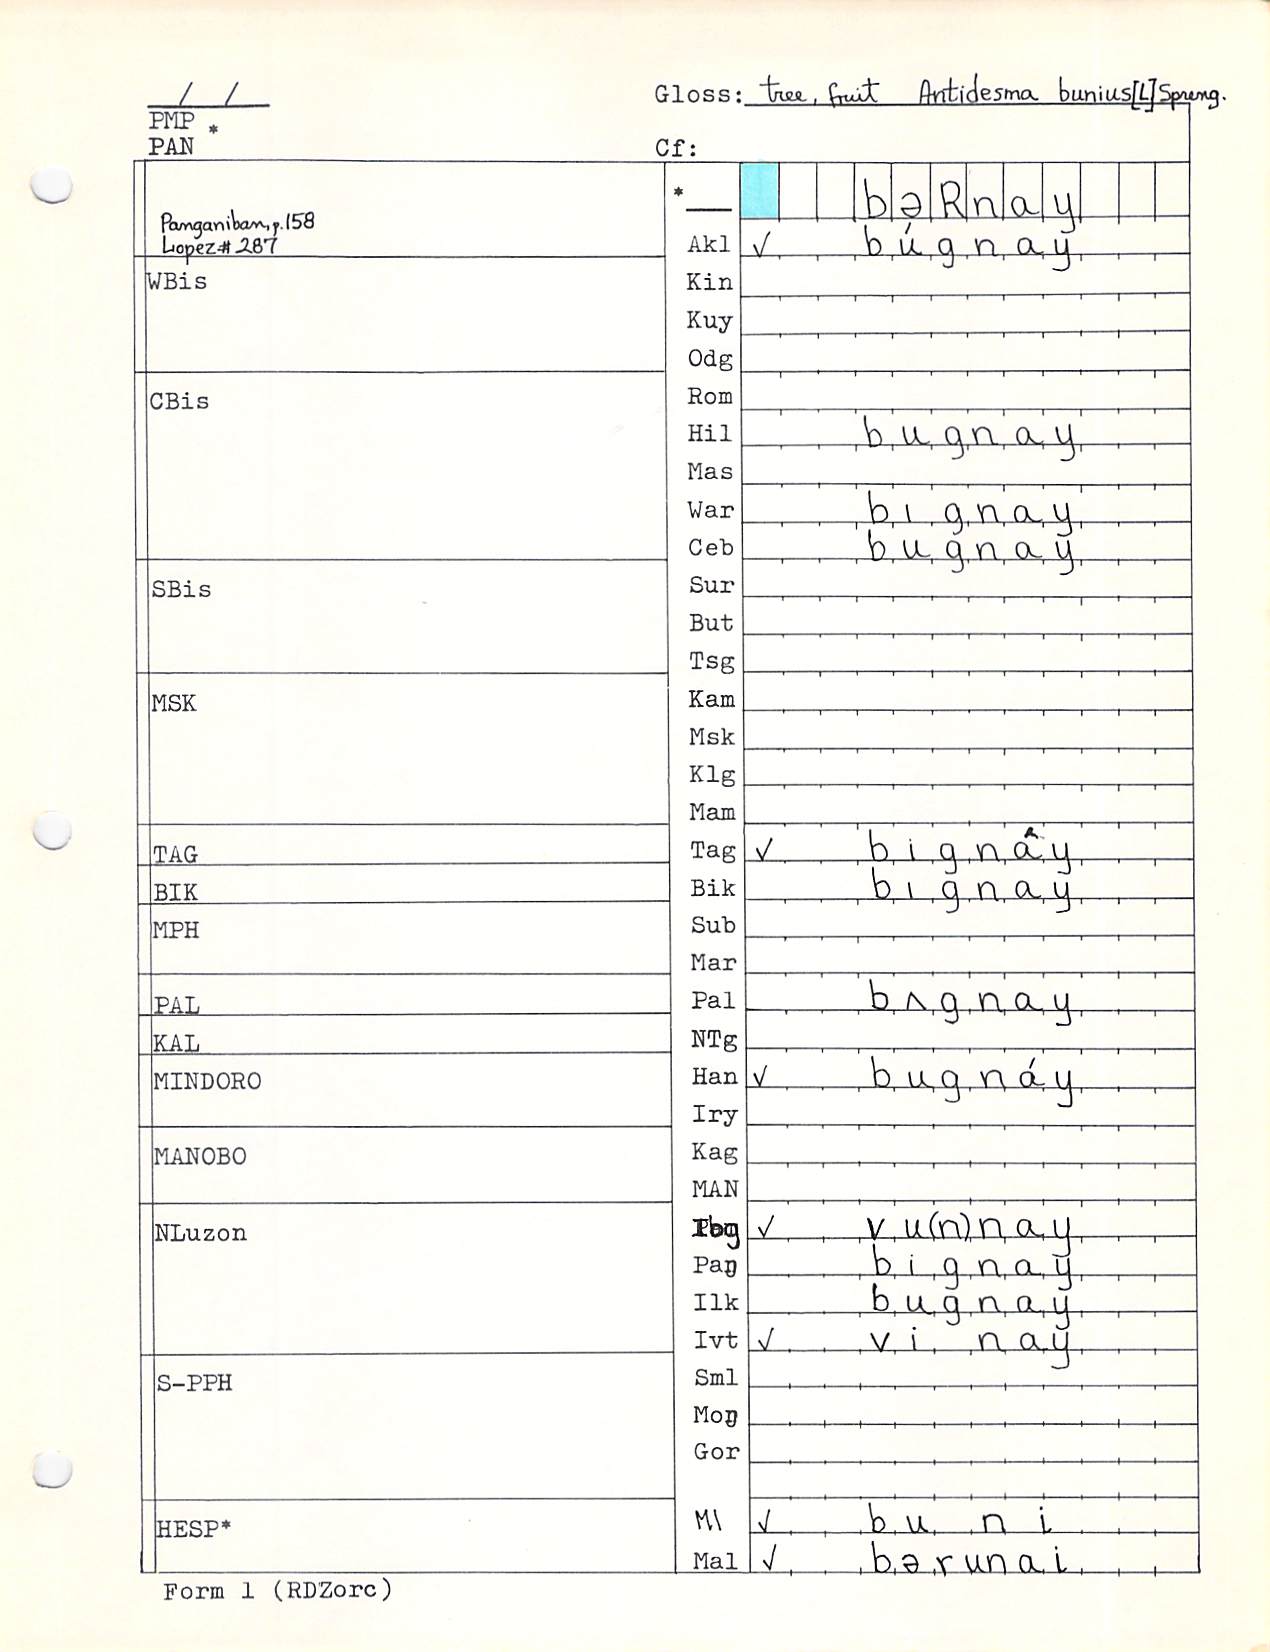 / /
Gloss: tree, fruit Antidesma bunius[L]Spreng.
PMP *
PAN
Cf:
* bəRnay
Panganiban, p.158
Lopez# 287
Akl ✓ búgnay
WBis
Kin
Kuy
Odg
CBis
Rom
Hil bugnay
Mas
War bignay
Ceb bugnay
SBis
Sur
But
Tsg
MSK
Kam
Msk
Klg
Mam
TAG
Tag ✓ bignây
BIK
Bik bignay
MPH
Sub
Mar
PAL
Pal bʌgnay
KAL
NTg
MINDORO
Han ✓ bugnáy
Iry
MANOBO
Kag
MAN
NLuzon
Ibg ✓ vu(n)nay
Paŋ bignay
Ilk bugnay
Ivt ✓ vi nay
S-PPH
Sml
Moŋ
Gor
HESP*
Ml ✓ bu n i
Mal ✓ bərunai
Form 1 (RDZorc)